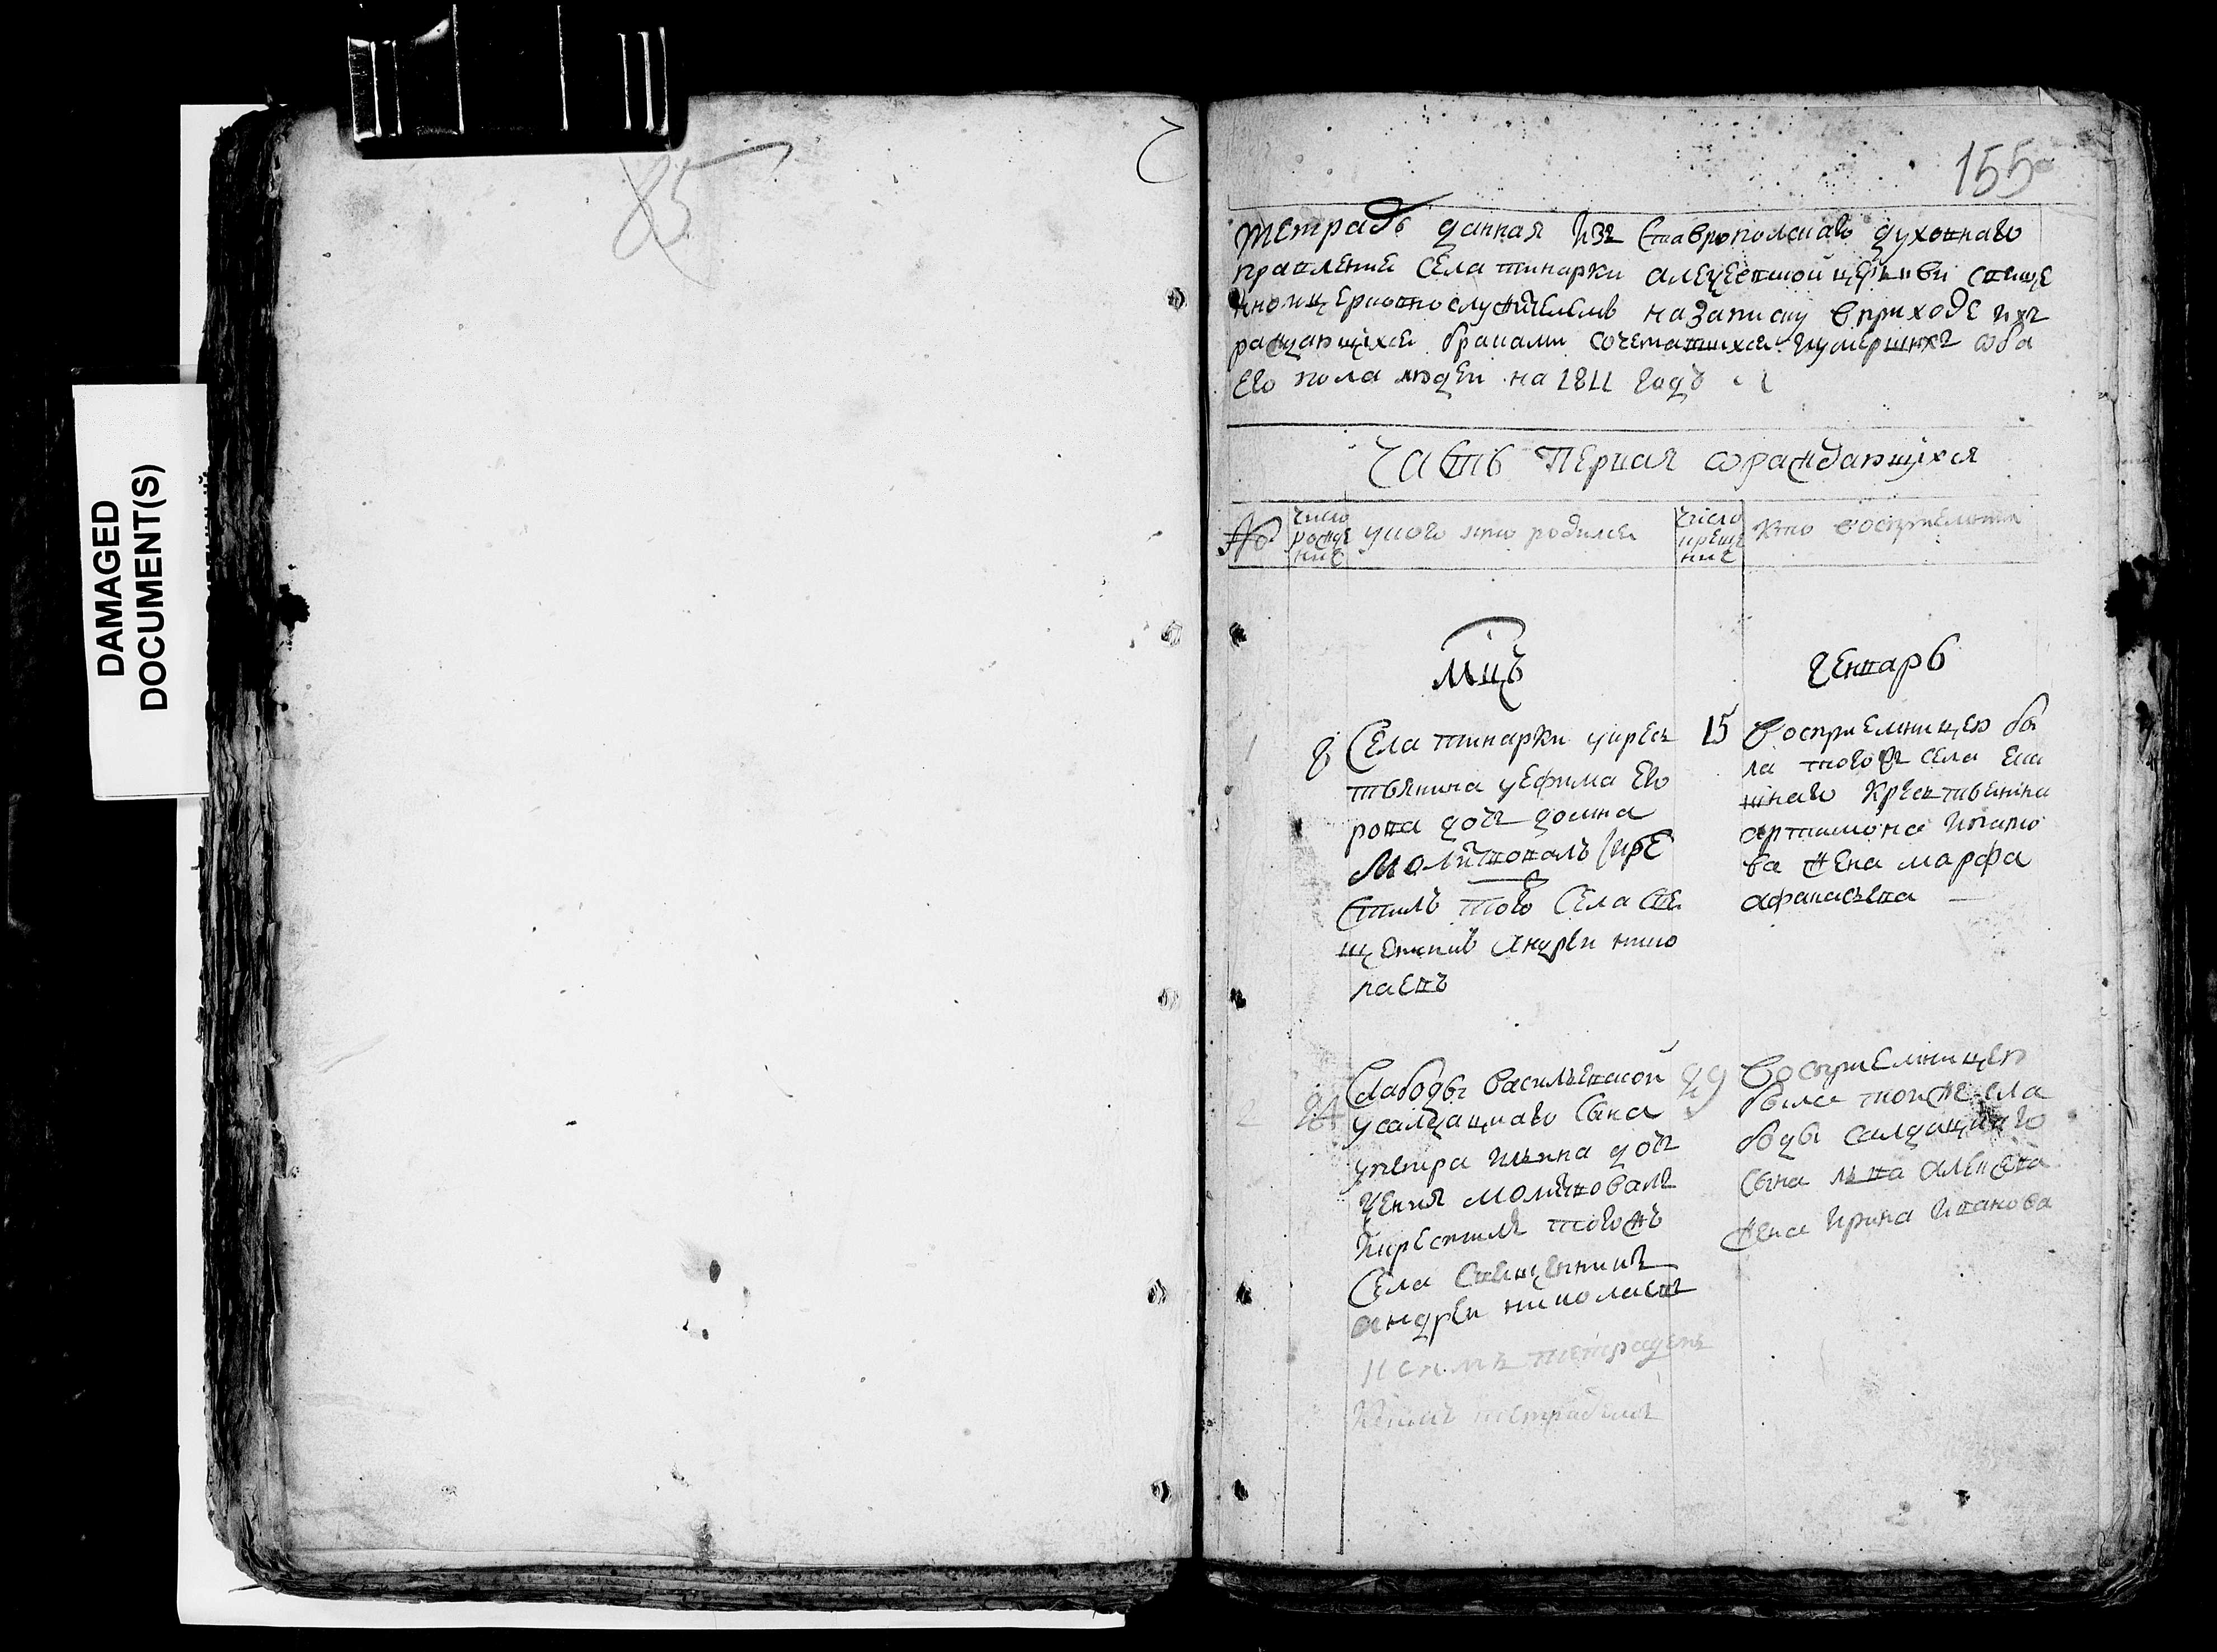 DAMAGED
DOCUMENT(S)
85
155
Тетрадь данная изъ Ставрополскаго духовнаго
правления села тинарки алеѯеевской церькви свяще
нно и церковно служителемъ на записку в приходе ихъ
раждающихся браками сочетавшихся и умершихъ ѡбо
его пола людей на 1811 годъ
Часть Первая ѡ раждающихся
№
число
рожде
ние
у кого кто родился
число
креще
ние
Кто восприемники
мцъ
Генварь
1
8
Села тинарки у крес
тьянина у Ефима Его
рова дочь домна
Молитвовалъ и кре
стилъ того Села свя
щенникъ Андрей нико
лаевъ
15
Восприемницею бы
ла того жъ села
крестьянина
артамона
ва жена марфа
афанасьева
2
24
Слабоды васильевской
у салдацкаго Сына
у петра ильина дочь
ѯения молитвовалъ
и крестилъ того жъ
Села Священникъ
андрей николаевъ
29
Восприемницею
была той же сла
боды салдацкаго
сына льва алеѯеева
жена Ирина Иванова